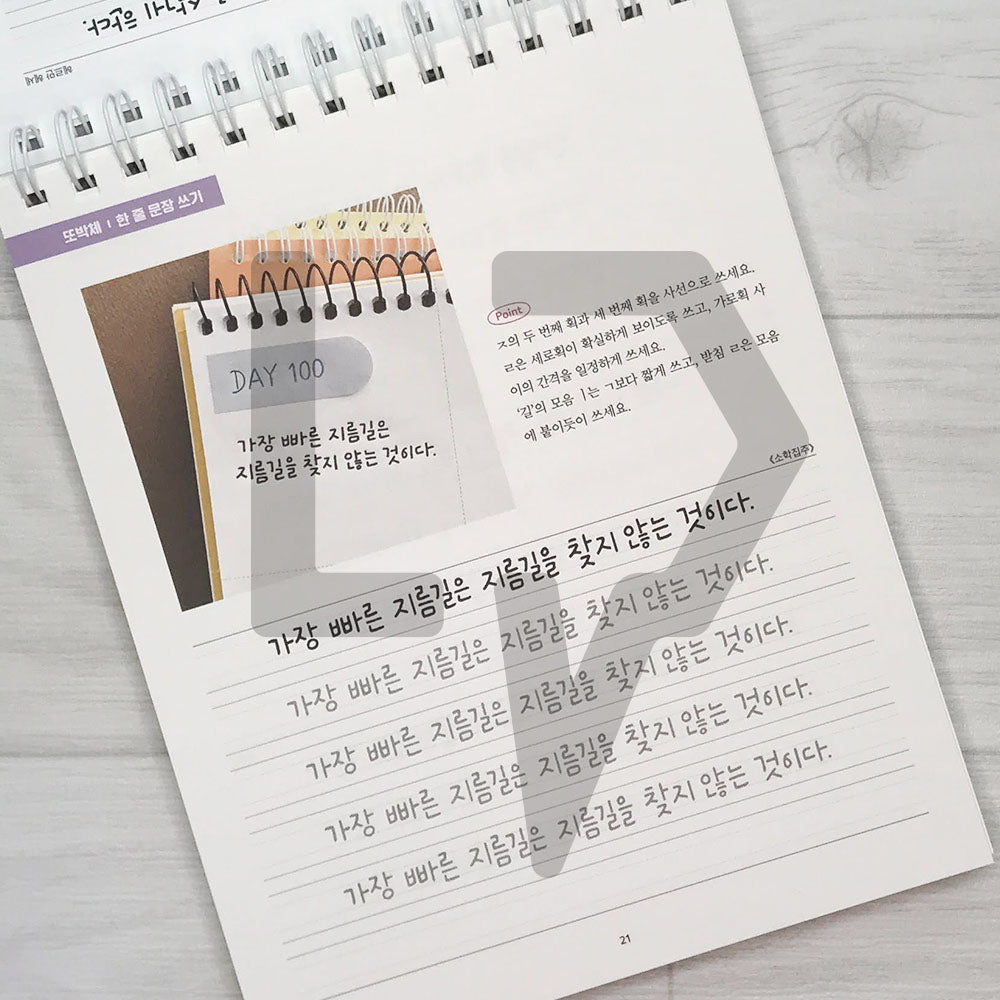 헤르만 헤세
또박체 | 한 줄 문장 쓰기
DAY 100
가장 빠른 지름길은
지름길을 찾지 않는 것이다.
Point
ㅈ의 두 번째 획과 세 번째 획을 사선으로 쓰세요.
ㄹ은 세로획이 확실하게 보이도록 쓰고, 가로획 사
이의 간격을 일정하게 쓰세요.
'길'의 모음 ㅣ는 ㄱ보다 짧게 쓰고, 받침 ㄹ은 모음
에 붙이듯이 쓰세요.
《소학집주》
가장 빠른 지름길은 지름길을 찾지 않는 것이다.
가장 빠른 지름길은 지름길을 찾지 않는 것이다.
가장 빠른 지름길은 지름길을 찾지 않는 것이다.
가장 빠른 지름길은 지름길을 찾지 않는 것이다.
가장 빠른 지름길은 지름길을 찾지 않는 것이다.
21